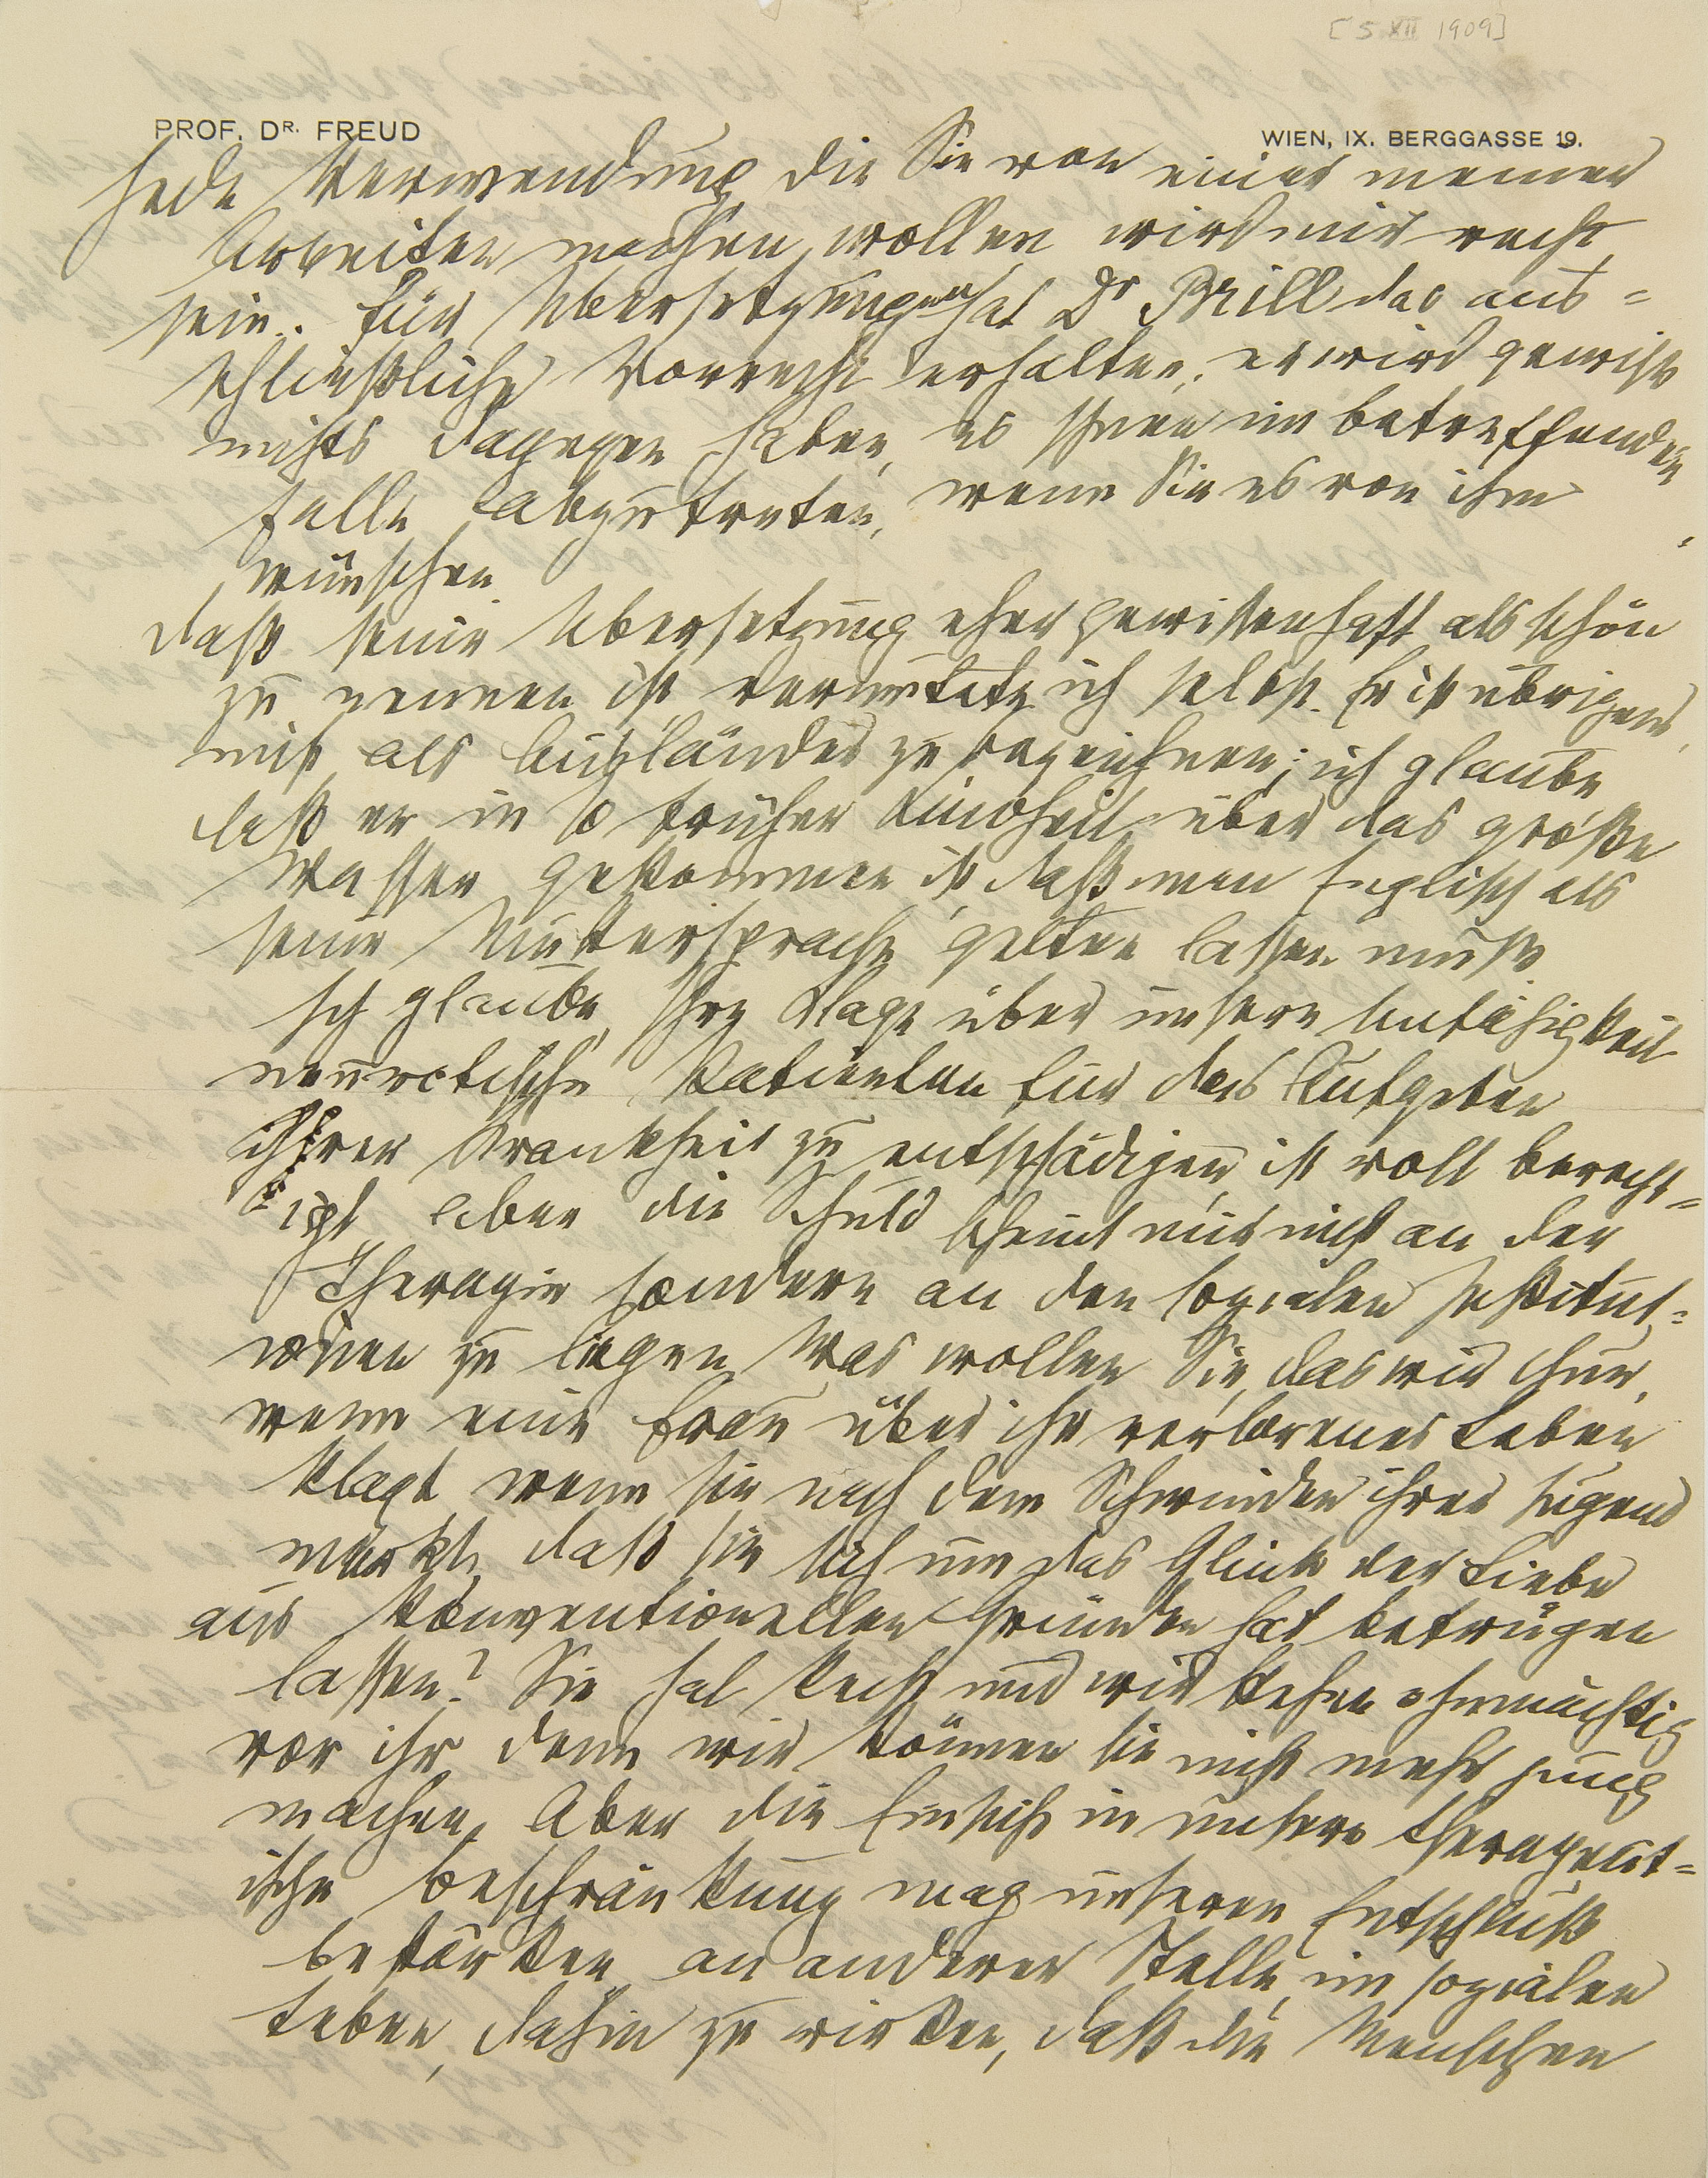 [5 XII 1909]
PROF. DR. FREUD
WIEN, IX. BERGGASSE 19.
Jede Verwendung die Sie von einer meiner
Arbeiten machen wollen wird mir recht
sein. Für Übersetzungen hat Dr Brill das aus=
schließliche Vorrecht erhalten, er wird gewiß
nichts dagegen haben, es Ihnen im betreffenden
Falle abzutreten, wenn Sie es von ihm
wünschen
Daß seine Übersetzung eher gewissenhaft als schön
zu nennen ist vermutete ich selbst. Er ist übrigens
nicht als Ausländer zu bezeichnen; ich glaube
daß er in so früher Kindheit über das große
Wasser gekommen ist, daß man Englisch als
seine Muttersprache gelten lassen muß
Ich glaube, Ihre Klage über unsere Unfähigkeit
neurotische Patienten für das Aufgeben
ihrer Krankheit zu entschädigen, ist voll berecht=
igt aber die Schuld scheint mir nicht an der
Therapie sondern an den sozialen Institut=
ionen zu liegen Was wollen Sie, das wir thun,
wenn eine Frau über ihr verlorenes Leben
klagt wenn sie nach dem Schwinden ihrer Jugend
merkt, daß sie sich um das Glück der Liebe
aus konventionellen Gründen hat betrügen
lassen? Sie hat Recht und wir stehen ohnmächtig
vor ihr denn wir können sie nicht mehr jung
machen. Aber die Einsicht in unsere therapeut=
ische Beschränkung mag unseren Entschluß
bestärken an anderer Stelle im sozialen
Leben, dahin zu wirken, daß die Menschen